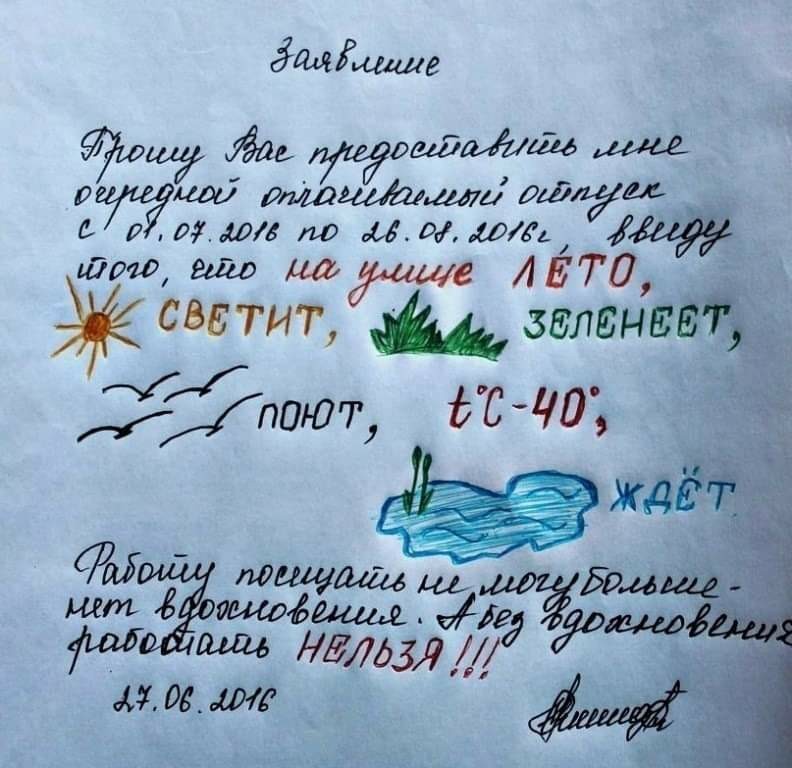 Заявление
Прошу Вас предоставить мне
очередной оплачиваемый отпуск
с 01.07.2016 по 26.08.2016г, ввиду
того, что на улице ЛЕТО,
СВЕТИТ, ЗЕЛЕНЕЕТ,
ПОЮТ, t°C-40°,
ЖДЁТ
Работу посещать не могу больше-
нет вдохновения. А без вдохновения
работать НЕЛЬЗЯ!!!
27.06.2016